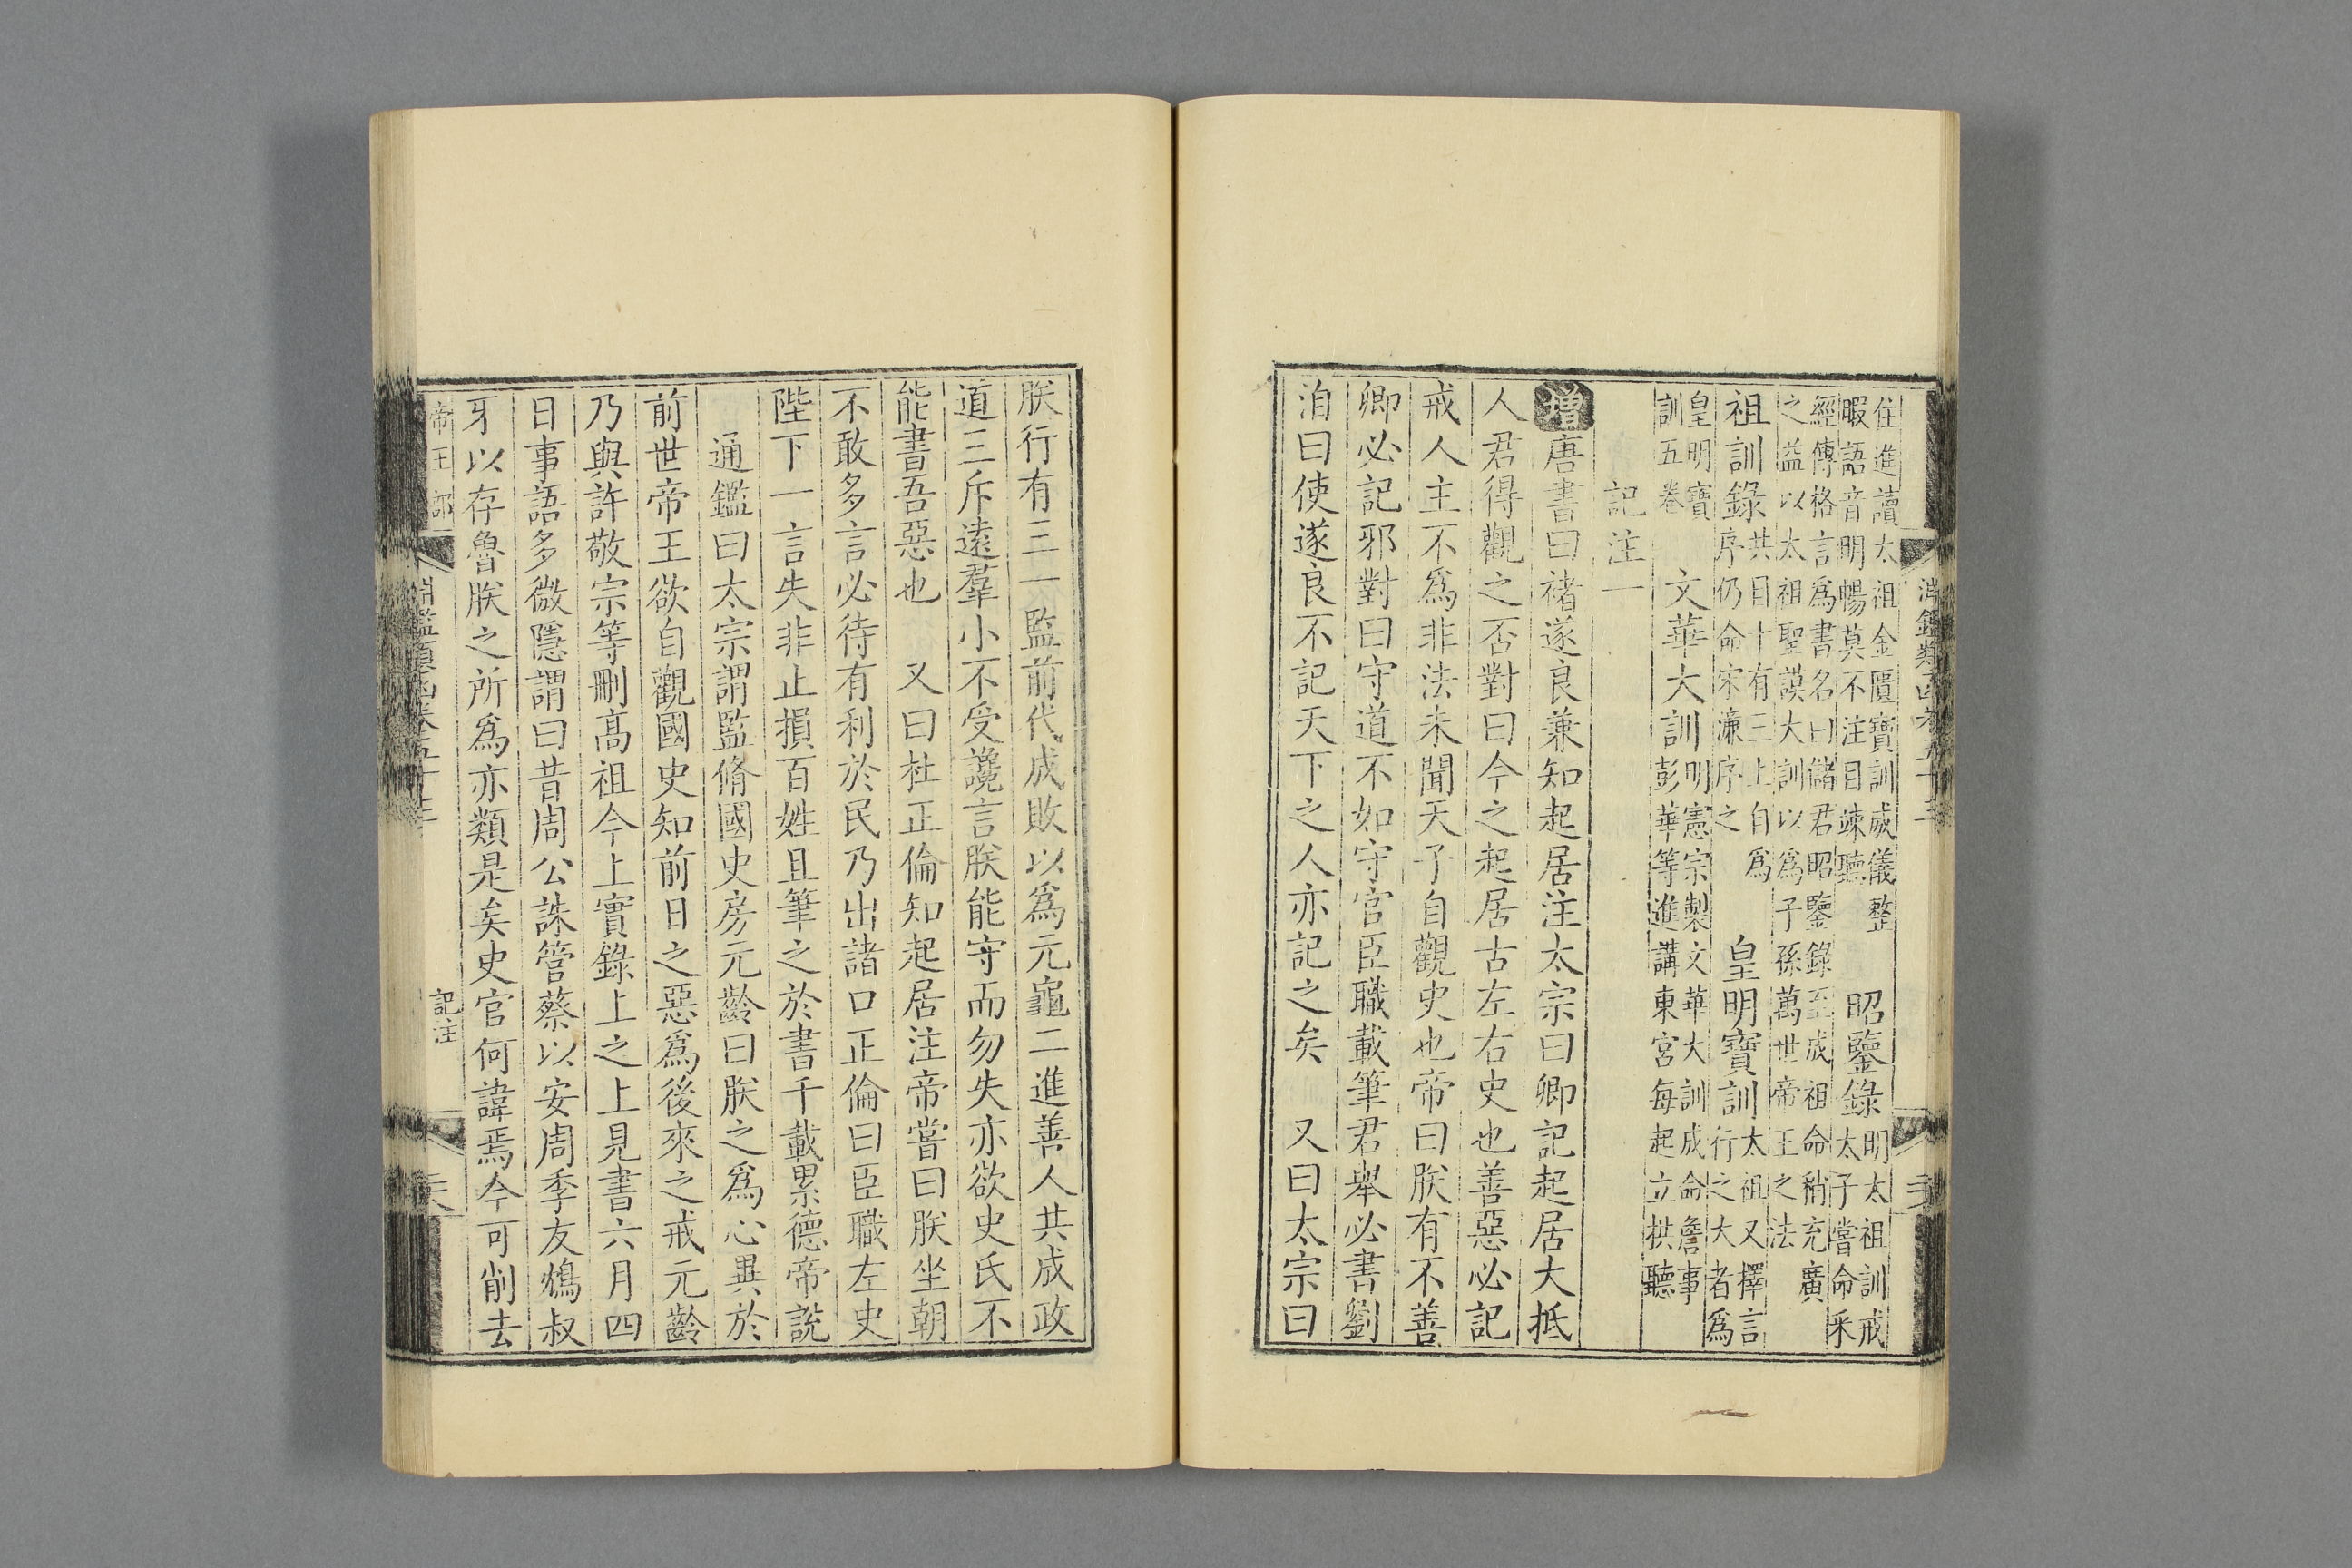 淵鑑類函卷五十三
住進讀太祖金匱寶訓威儀整
暇語音明暢莫不注目竦聽
昭鑒錄
明太祖訓戒
太子嘗命采
經傳格言爲書名曰儲君昭鑒錄至成祖命稍充廣
之益以太祖聖謨大訓以爲子孫萬世帝王之法
祖訓錄
共目十有三上自爲
序仍命宋濂序之
皇明寶訓
太祖又擇言
行之大者爲
皇明寶
訓五卷
文華大訓
明憲宗製文華大訓成命詹事
彭華等進講東宮每起立拱聽
記注一
增唐書曰褚遂良兼知起居注太宗曰卿記起居大抵
人君得觀之否對曰今之起居古左右史也善惡必記
戒人主不爲非法未聞天子自觀史也帝曰朕有不善
卿必記邪對曰守道不如守官臣職載筆君舉必書劉
洎曰使遂良不記天下之人亦記之矣　又曰太宗曰
朕行有三一監前代成敗以爲元龜二進善人共成政
道三斥遠羣小不受讒言朕能守而勿失亦欲史氏不
能書吾惡也　又曰杜正倫知起居注帝嘗曰朕坐朝
不敢多言必待有利於民乃出諸口正倫曰臣職左史
陛下一言失非止損百姓且筆之於書千載累德帝說
通鑑曰太宗謂監脩國史房元齡曰朕之爲心異於
前世帝王欲自觀國史知前日之惡爲後來之戒元齡
乃與許敬宗等刪高祖今上實錄上之上見書六月四
日事語多微隱謂曰昔周公誅管蔡以安周季友鴆叔
牙以存魯朕之所爲亦類是矣史官何諱焉今可削去
帝王部
淵鑑類函卷五十三
記注